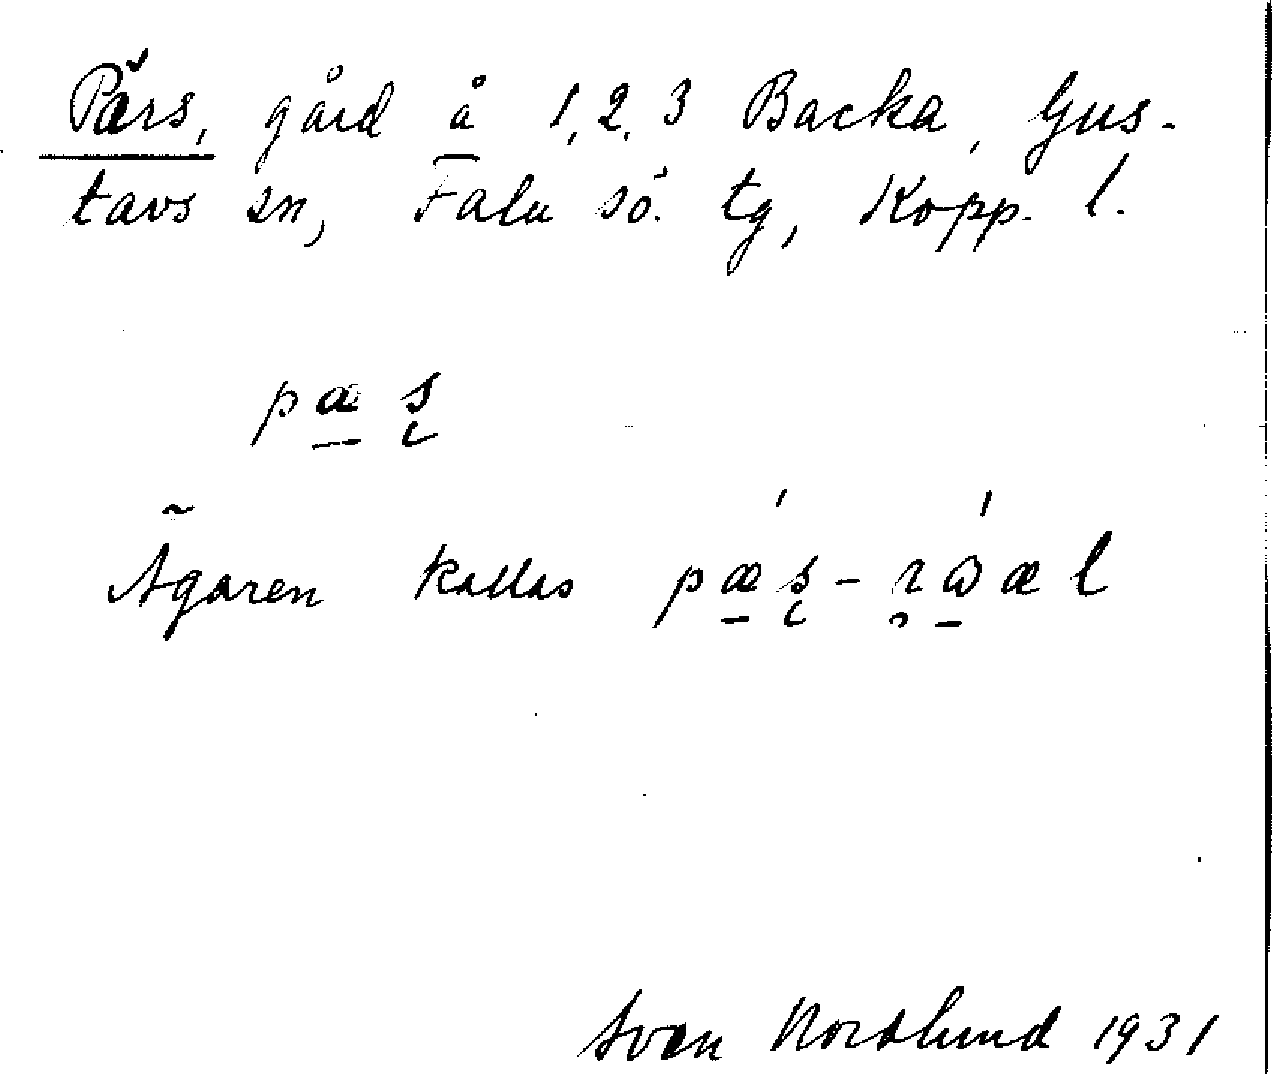 Pärs, gård å 1, 2, 3 Backa, Gus-
tavs sn, Falu sö. tg, Kopp. l.
pæs
Ägaren kallas
Sven Nordlund 1931